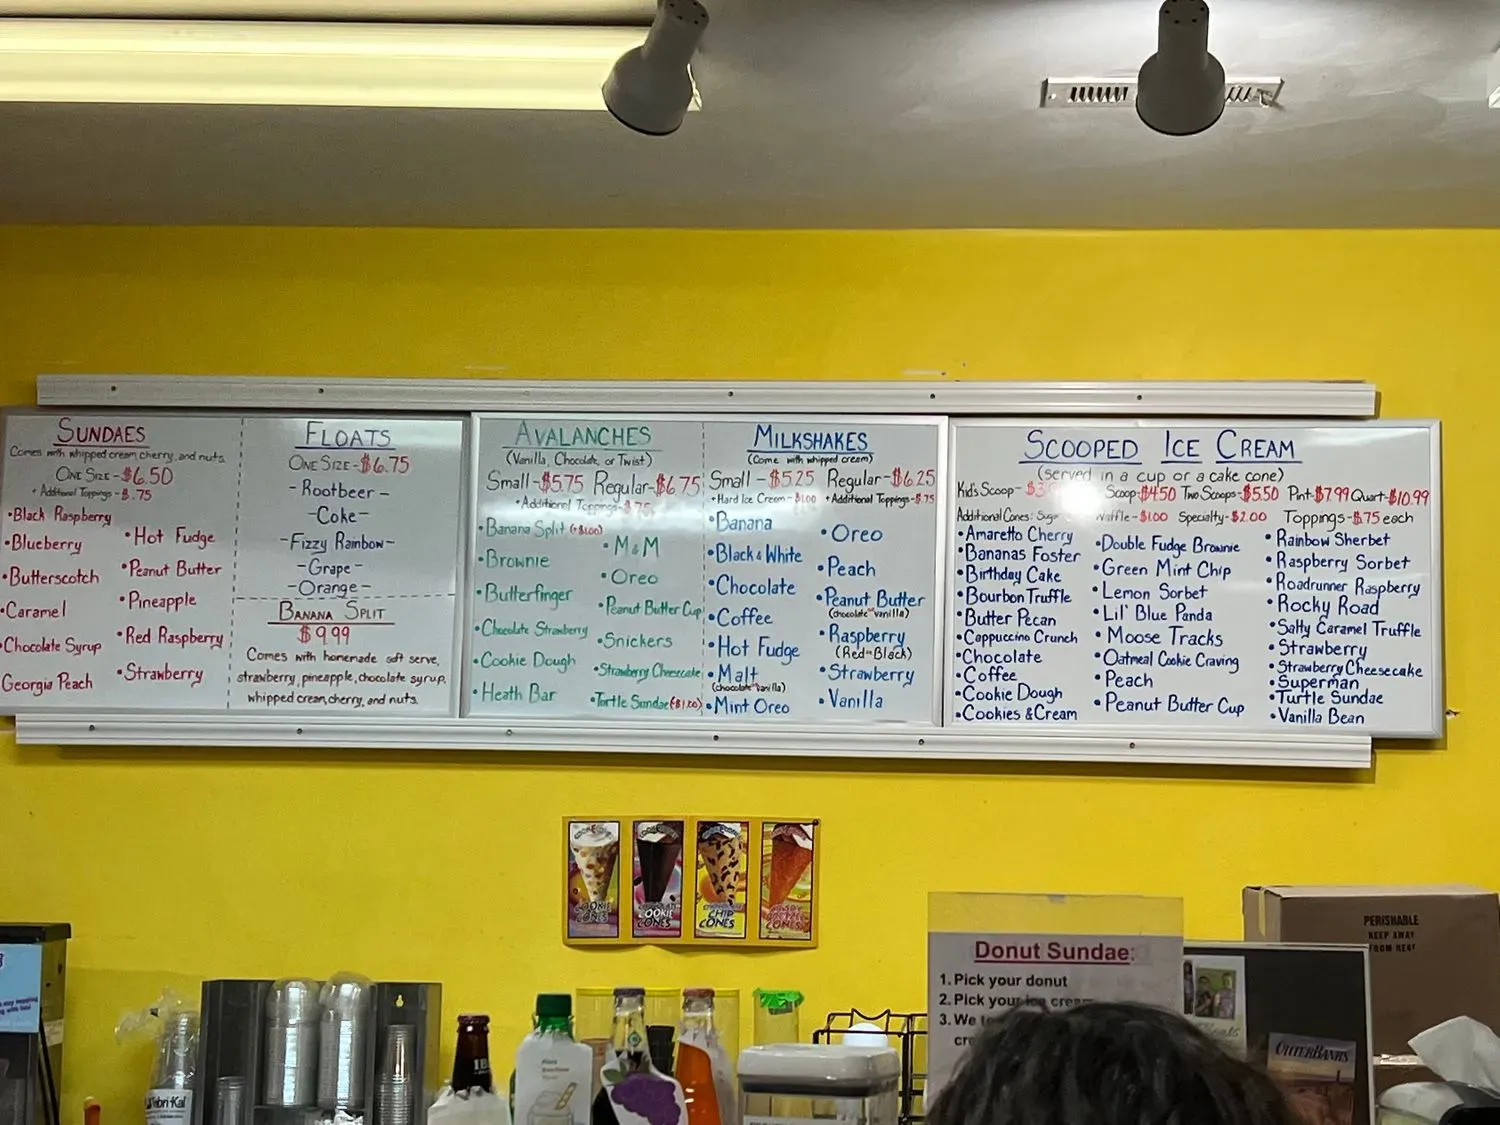 SUNDAES
Comes with whipped cream, cherry, and nuts.
ONE SIZE - $6.50
+ Additional Toppings - $.75
• Black Raspberry
• Blueberry
• Butterscotch
• Caramel
• Chocolate Syrup
Georgia Peach
• Hot Fudge
• Peanut Butter
• Pineapple
• Red Raspberry
• Strawberry
FLOATS
ONE SIZE - $6.75
- Rootbeer -
- Coke -
- Fizzy Rainbow -
- Grape -
- Orange -
BANANA SPLIT
$9.99
Comes with homemade soft serve,
strawberry, pineapple, chocolate syrup,
whipped cream, cherry, and nuts.
AVALANCHES
(Vanilla, Chocolate, or Twist)
Small - $5.75 Regular - $6.75
+ Additional Toppings - $.75
• Banana Split (+$1.00)
• Brownie
• Butterfinger
• Chocolate Strawberry
• Cookie Dough
• Heath Bar
• M&M
• Oreo
• Peanut Butter Cup
• Snickers
• Strawberry Cheesecake
• Turtle Sundae (+$1.00)
MILKSHAKES
(Come with whipped cream)
Small - $5.25 Regular - $6.25
+ Hard Ice Cream - $1.00 + Additional Toppings - $.75
• Banana
• Black & White
• Chocolate
• Coffee
• Hot Fudge
• Malt
(chocolate or vanilla)
• Mint Oreo
• Oreo
• Peach
• Peanut Butter
(chocolate or vanilla)
• Raspberry
(Red or Black)
• Strawberry
• Vanilla
SCOOPED ICE CREAM
(served in a cup or a cake cone)
Kid's Scoop - Scoop - $4.50 Two Scoops - $5.50 Pint - $7.99 Quart - $10.99
Additional Cones: Sugar Waffle - $1.00 Specialty - $2.00 Toppings - $.75 each
• Amaretto Cherry
• Bananas Foster
• Birthday Cake
• Bourbon Truffle
• Butter Pecan
• Cappuccino Crunch
• Chocolate
• Coffee
• Cookie Dough
• Cookies & Cream
• Double Fudge Brownie
• Green Mint Chip
• Lemon Sorbet
• Lil' Blue Panda
• Moose Tracks
• Oatmeal Cookie Craving
• Peach
• Peanut Butter Cup
• Rainbow Sherbet
• Raspberry Sorbet
• Roadrunner Raspberry
• Rocky Road
• Salty Caramel Truffle
• Strawberry
• Strawberry Cheesecake
• Superman
• Turtle Sundae
• Vanilla Bean
COOKIE
CONES
COOKIE
CONES
CHIP
CONES
CONES
PERISHABLE
KEEP AWAY
FROM HEAT
Donut Sundae:
1. Pick your donut
2. Pick your ice cream
3. We
OUTER BANKS